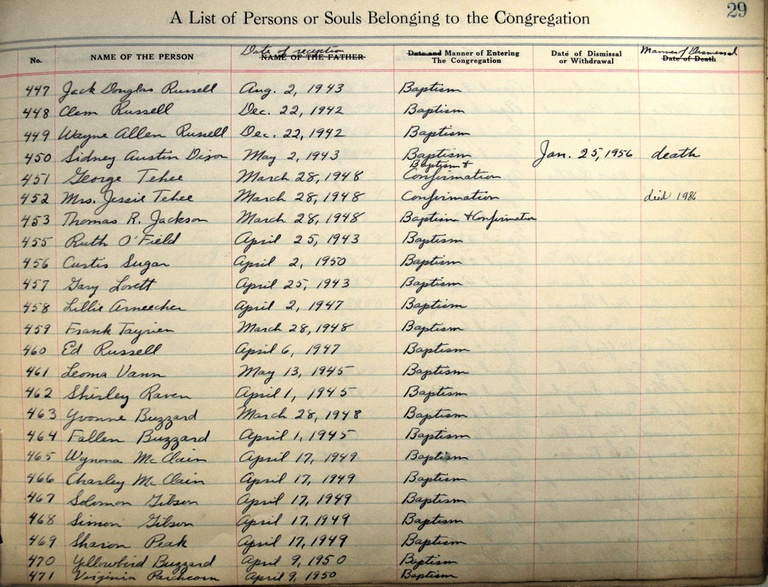 29
A List of Persons or Souls Belonging to the Congregation
No. NAME OF THE PERSON Date of reception NAME OF THE FATHER Date and Manner of Entering The Congregation Date of Dismissal or Withdrawal Manner of Dismissal Date of Death
447 Jack Douglas Russell Aug. 2, 1943 Baptism
448 Clem Russell Dec. 22, 1942 Baptism
449 Wayne Allen Russell Dec. 22, 1942 Baptism
450 Sidney Austin Dixon May 2, 1943 Baptism Jan. 25, 1956 death
451 George Tehee March 28, 1948 Baptism + Confirmation
452 Mrs. Jessie Tehee March 28, 1948 Confirmation died 1986
453 Thomas R. Jackson March 28, 1948 Baptism + Confirmation
455 Ruth O'Field April 25, 1943 Baptism
456 Curtis Sugar April 2, 1950 Baptism
457 Gary Lovett April 25, 1943 Baptism
458 Lillie Arneecher April 2, 1947 Baptism
459 Frank March 28, 1948 Baptism
460 Ed Russell April 6, 1947 Baptism
461 Leona Vann May 13, 1945 Baptism
462 Shirley Raven April 1, 1945 Baptism
463 Yvonne Buzzard March 28, 1948 Baptism
464 Fallen Buzzard April 1, 1945 Baptism
465 Wynona McClain April 17, 1949 Baptism
466 Charley McClain April 17, 1949 Baptism
467 Solomon Gibson April 17, 1949 Baptism
468 Simon Gibson April 17, 1949 Baptism
469 Sharon Peak April 17, 1949 Baptism
470 Yellowbird Buzzard April 9, 1950 Baptism
471 Virginia April 9, 1950 Baptism